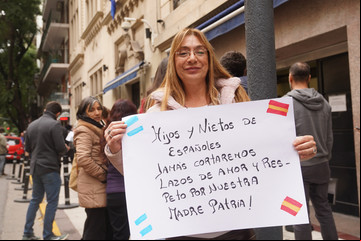 Hijos y Nietos de
Españoles
Jamas cortaremos
Lazos de Amor y Res-
peto por nuestra
Madre Patria!